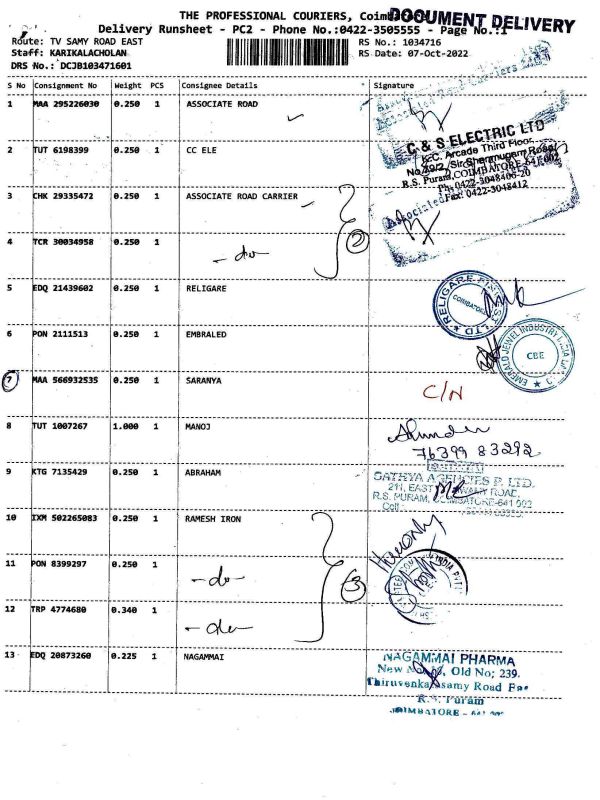 THE PROFESSIONAL COURIERS,
DOCUMENT DELIVERY
Delivery Runsheet - PC2 - Phone No.:0422-3505555 - Page No.:1
Route: TV SAMY ROAD EAST
RS No.: 1034716
Staff: KARIKALACHOLAN
RS Date: 07-Oct-2022
DRS No.: DCJB103471601
S No Consignment No Weight PCS Consignee Details Signature
1 MAA 295226030 0.250 1 ASSOCIATE ROAD
2 TUT 6198399 0.250 1 CC ELE
C & S ELECTRIC LTD
K.C. Arcade Third Floor,
R.S. Puram, COIMBATORE-641 002
Ph: 0422-3048406-20
Fax: 0422-3048412
3 CHK 29335472 0.250 1 ASSOCIATE ROAD CARRIER
4 TCR 30034958 0.250 1 -do-
2
5 EDQ 21439602 0.250 1 RELIGARE
6 PON 2111513 0.250 1 EMBRALED
EMERALD JEWEL INDUSTRY INDIA
CBE
7 MAA 566932535 0.250 1 SARANYA
C/N
8 TUT 1007267 1.000 1 MANOJ
76399 83292
9 KTG 7135429 0.250 1 ABRAHAM
SATHYA AGENCIES P. LTD.
211, EAST
R.S. PURAM, COIMBATORE-641 002
Cell :
10 IXM 502265083 0.250 1 RAMESH IRON
11 PON 8399297 0.250 1 -do-
3
12 TRP 4774680 0.340 1 -do-
13 EDQ 20873260 0.225 1 NAGAMMAI
NAGAMMAI PHARMA
New Old No; 239.
Thiruvenkatasamy Road
R.S. Puram